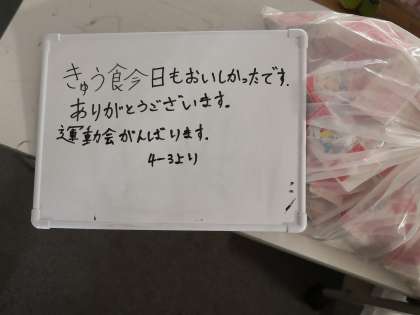 きゅう食今日もおいしかったです.
ありがとうございます。
運動会がんばります。
4-3より